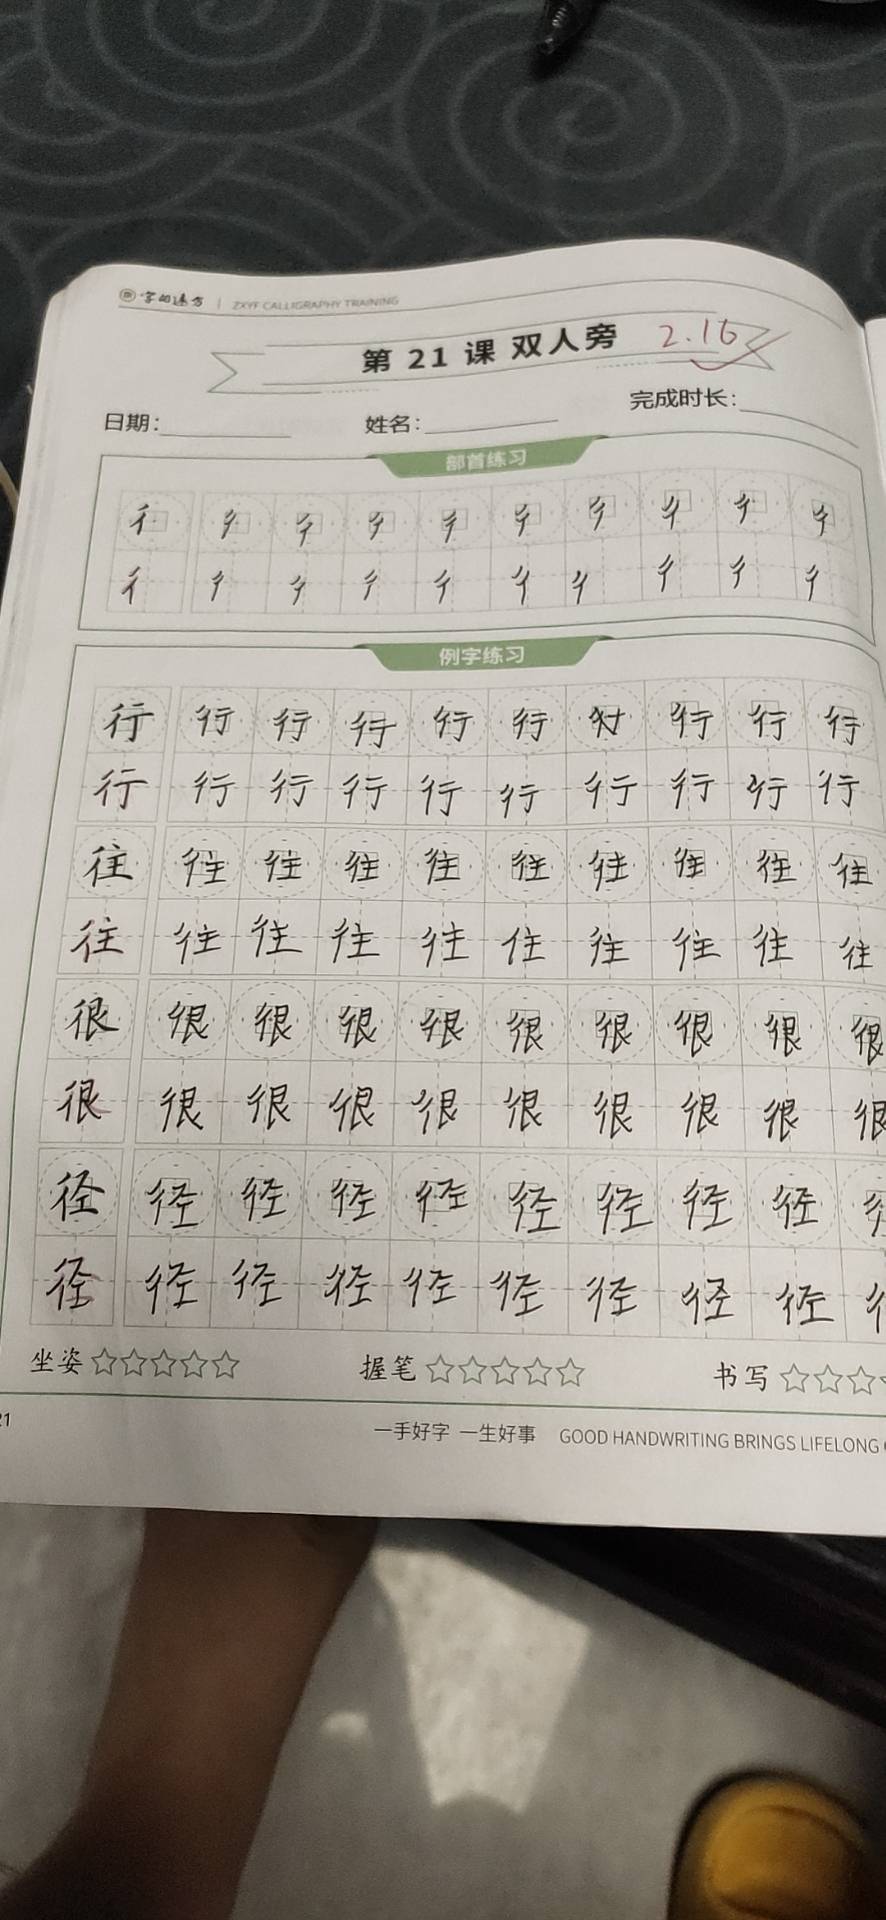 字的远方 | ZXYF CALLIGRAPHY TRAINING
第 21 课 双人旁 2.16
日期: 姓名: 完成时长:
部首练习
彳 彳 彳 彳 彳 彳 彳 彳 彳 彳
彳 彳 彳 彳 彳 彳 彳 彳 彳 彳
例字练习
行 行 行 行 行 行 行 行 行
行 行 行 行 行 行 行 行 行 行
往 往 往 往 往 往 往 往 往 往
往 往 往 往 往 往 往 往 往 往
很 很 很 很 很 很 很 很 很 很
很 很 很 很 很 很 很 很 很 很
径 径 径 径 径 径 径 径 径
径 径 径 径 径 径 径 径 径
坐姿 握笔 书写
21
一手好字 一生好事 GOOD HANDWRITING BRINGS LIFELONG